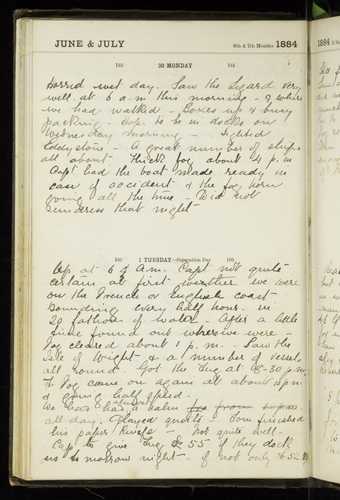 JUNE & JULY
6th & 7th Months
1884
1884
182 30 MONDAY 184
Horrid wet day. Saw the Lizard very
well at 6 a.m this morning - of where
we had walked - Boxes up & busy
packing - Expt to be in docks on
Wednesday morning - Sighted
Eddystone - A great number of ships
all about - Thick fog about 4 p.m
Capt had the boat made ready in
case of accident & the fog horn
going all the time - Did not
undress that night
183 1 TUESDAY
Up at 6 a.m. Capt not quite
certain at first whether we were
on the French or English coast
Sounding every half hour in
20 fathom of water - After a little
time found out where we were -
Fog cleared about 1 p.m. Saw the
Isle of Wight & a number of vessels
all round - Got the Tug at 5-30 p.m.
Fog came on again at about 10 p.m
& going half speed.
We had had a calm
all day. Played quoits - Tom finished
his paper knife - not quite well -
Capt to give Tug £55 if they dock
us tomorrow night - if not only